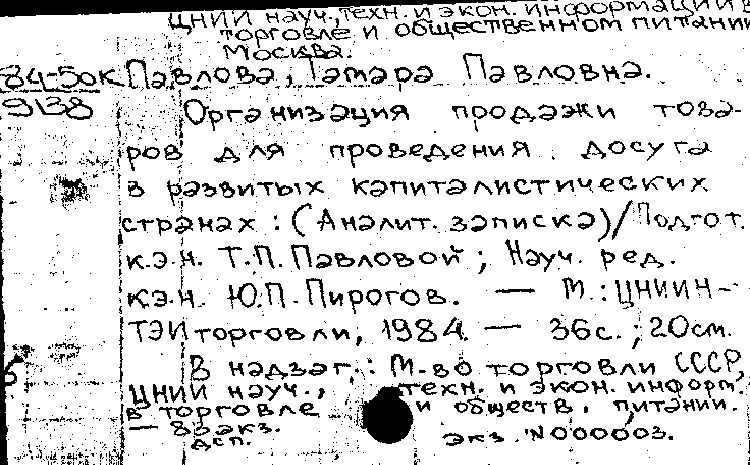 ЦНИИ науч., техн. и экон. информации в
торговле и общественном питании
Москва.
84-50к Павлова, Тамара Павловна.
9138
Организация продажи това-
ров для проведения досуга
в развитых капиталистических
странах : (Аналит. записка)/Подгот.
к.э.н. Т.П. Павловой ; Науч. ред.
к.э.н. Ю.П. Пирогов. — М. : ЦНИИН-
ТЭИторговли, 1984. — 36с. ; 20см.
В надзаг. : М-во торговли СССР,
ЦНИИ науч., техн. и экон. информ.
в торговле и обществ. питании.
— экз.
дсп. экз. N000003.